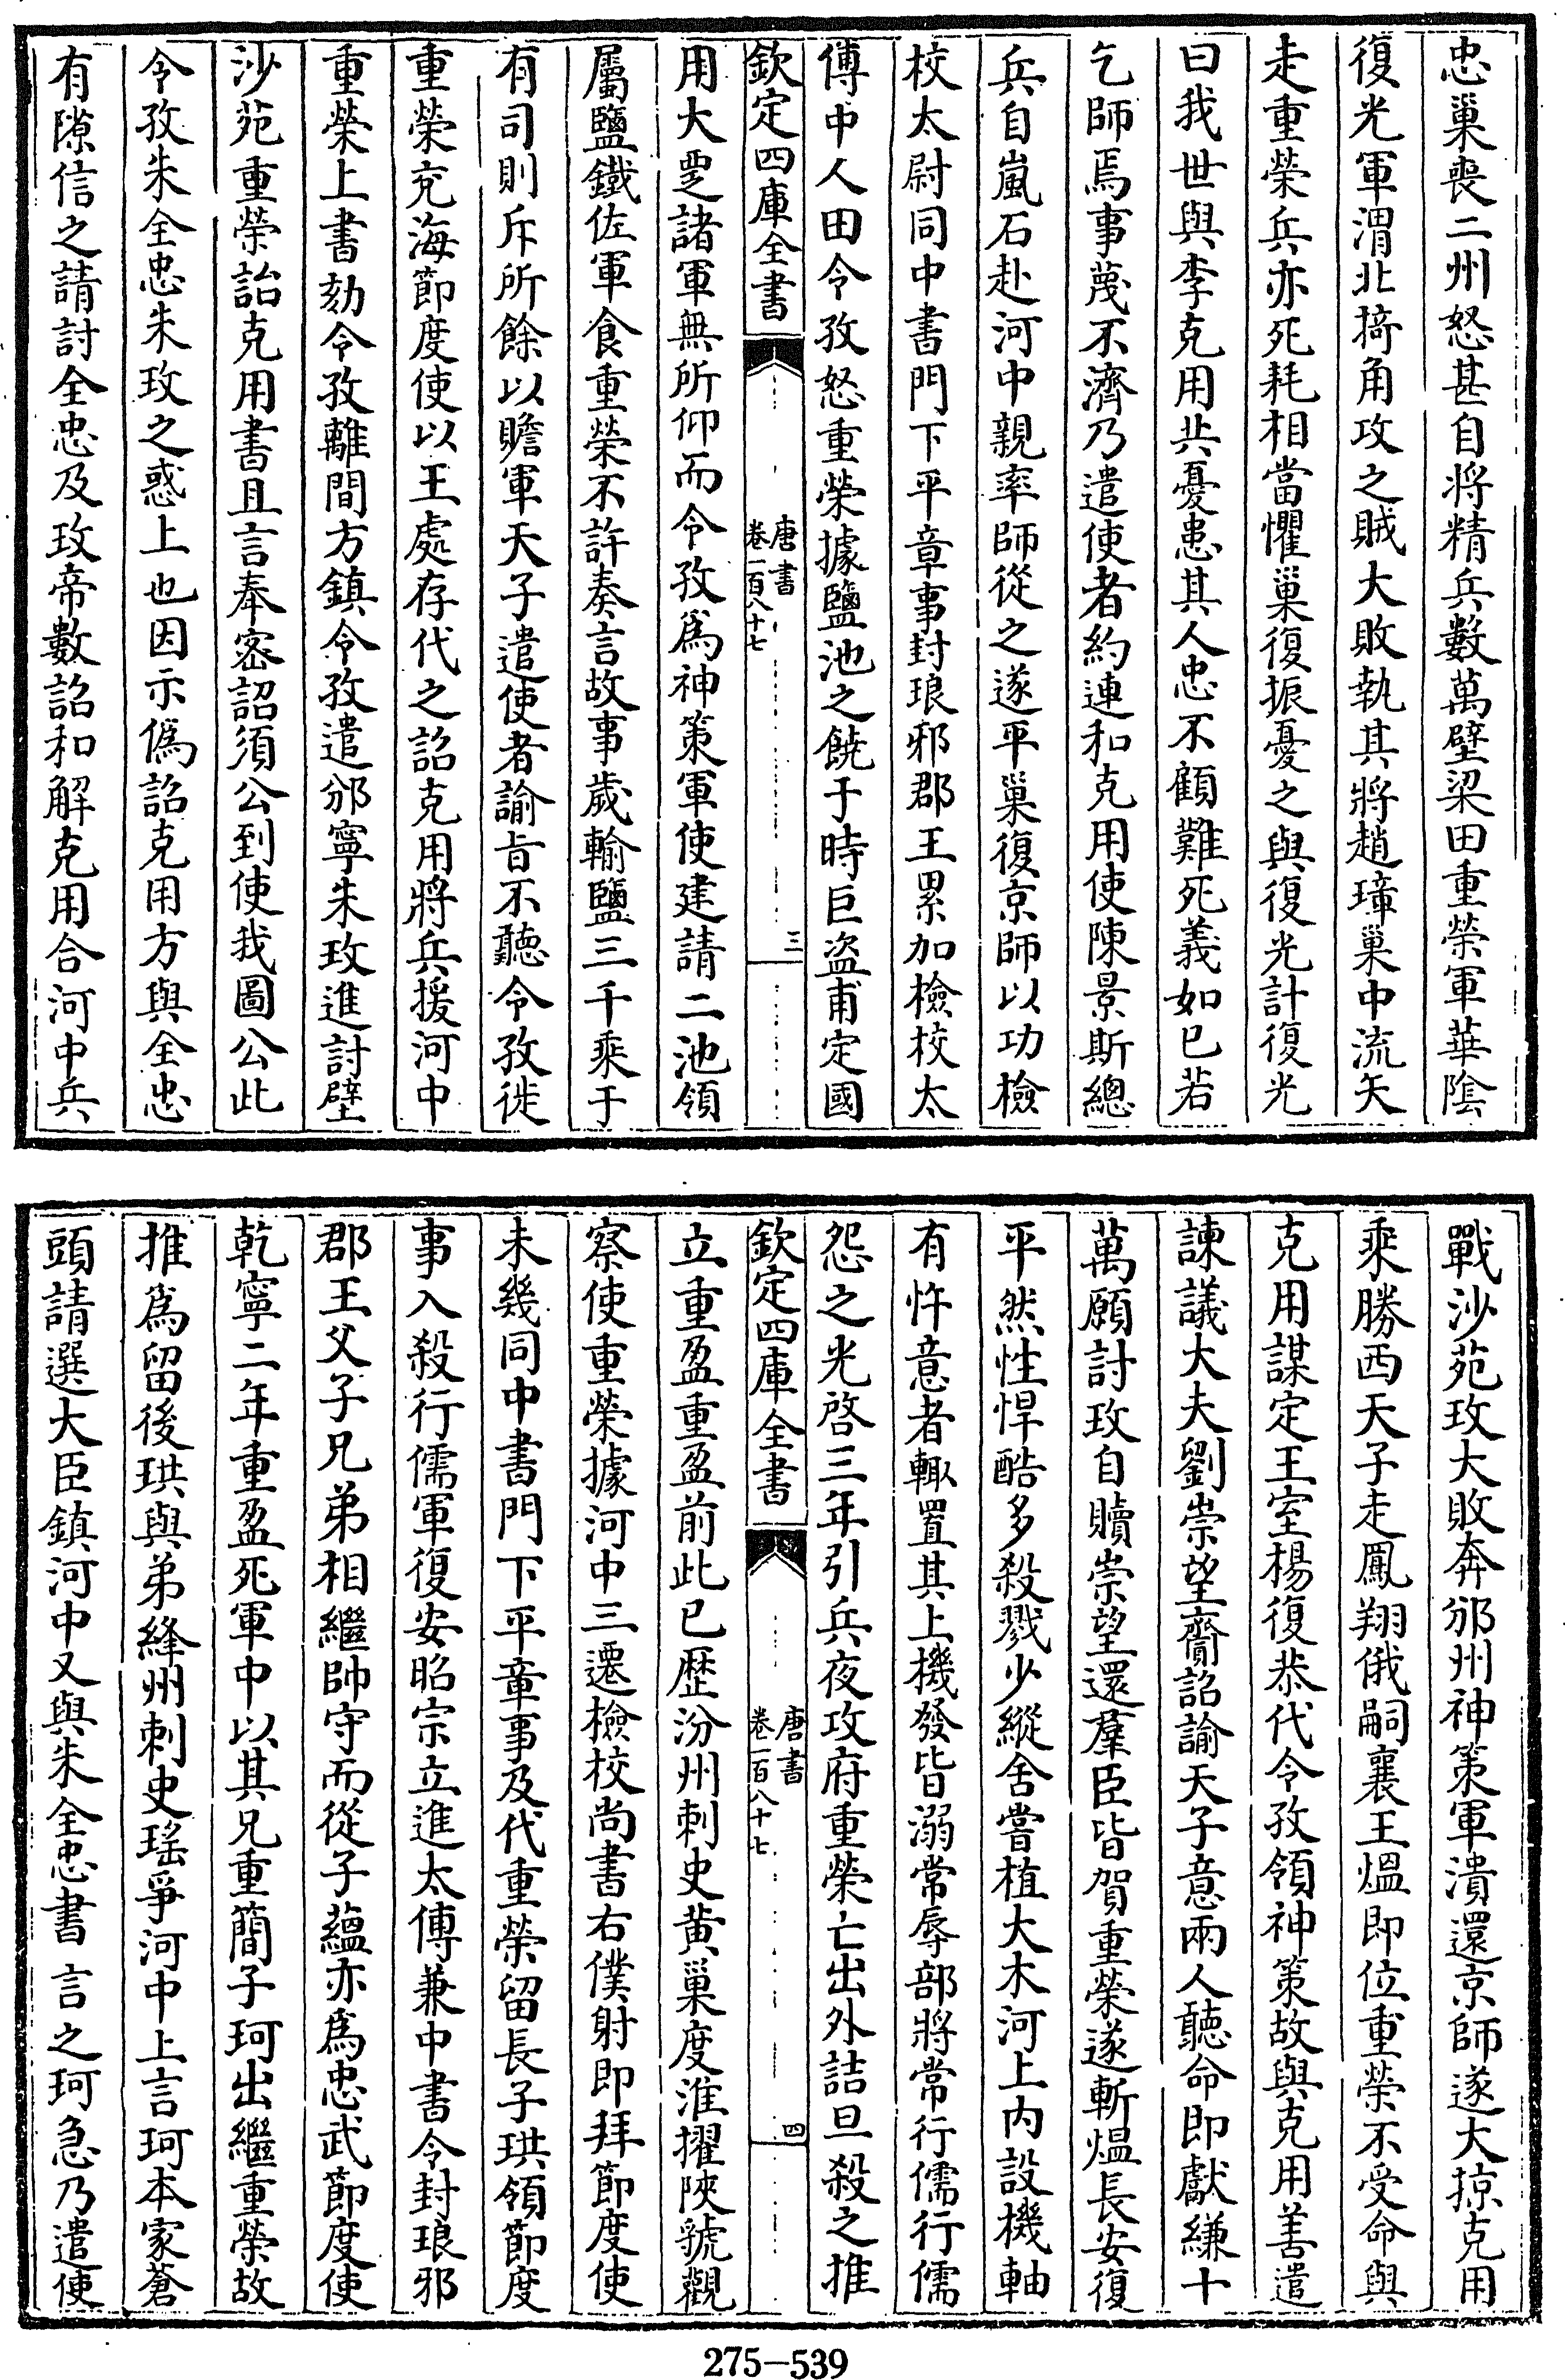 忠巢喪二州怒甚自將精兵數萬壁梁田重榮軍華隂
復光軍渭北掎角攻之賊大敗執其將趙璋巢中流矢
走重榮兵亦死耗相當懼巢復振憂之與復光計復光
曰我世與李克用共憂患其人忠不顧難死義如已若
乞師焉事蔑不濟乃遣使者約連和克用使陳景斯總
兵自嵐石赴河中親率師從之遂平巢復京師以功檢
校太尉同中書門下平章事封琅邪郡王累加檢校太
傅中人田令孜怒重榮據鹽池之饒于時巨盜甫定國
欽定四庫全書
唐書
卷一百八十七
三
用大覂諸軍無所仰而令孜為神策軍使建請二池領
屬鹽鐵佐軍食重榮不許奏言故事歲輸鹽三千乘于
有司則斥所餘以贍軍天子遣使者諭旨不聽令孜徙
重榮兖海節度使以王處存代之詔克用將兵援河中
重榮上書劾令孜離間方鎮令孜遣邠寧朱玫進討壁
沙苑重榮詒克用書且言奉密詔須公到使我圖公此
令孜朱全忠朱玫之惑上也因示偽詔克用方與全忠
有隙信之請討全忠及玫帝數詔和解克用合河中兵
戰沙苑玫大敗奔邠州神策軍潰還京師遂大掠克用
乘勝西天子走鳳翔俄嗣襄王熅即位重榮不受命與
克用謀定王室楊復恭代令孜領神策故與克用善遣
諫議大夫劉崇望齎詔諭天子意兩人聽命即獻縑十
萬願討玫自贖崇望還羣臣皆賀重榮遂斬熅長安復
平然性悍酷多殺戮少縱舍嘗植大木河上内設機軸
有忤意者輙置其上機發皆溺常辱部將常行儒行儒
怨之光啓三年引兵夜攻府重榮亡出外詰旦殺之推
欽定四庫全書
唐書
卷一百八十七
四
立重盈重盈前此已歴汾州刺史黄巢度淮擢陜虢觀
察使重榮據河中三遷檢校尚書右僕射即拜節度使
未幾同中書門下平章事及代重榮留長子珙領節度
事入殺行儒軍復安昭宗立進太傅兼中書令封琅邪
郡王父子兄弟相繼帥守而從子蘊亦為忠武節度使
乾寧二年重盈死軍中以其兄重簡子珂出繼重榮故
推為留後珙與弟絳州刺史瑤爭河中上言珂本家蒼
頭請選大臣鎮河中又與朱全忠書言之珂急乃遣使
275-539